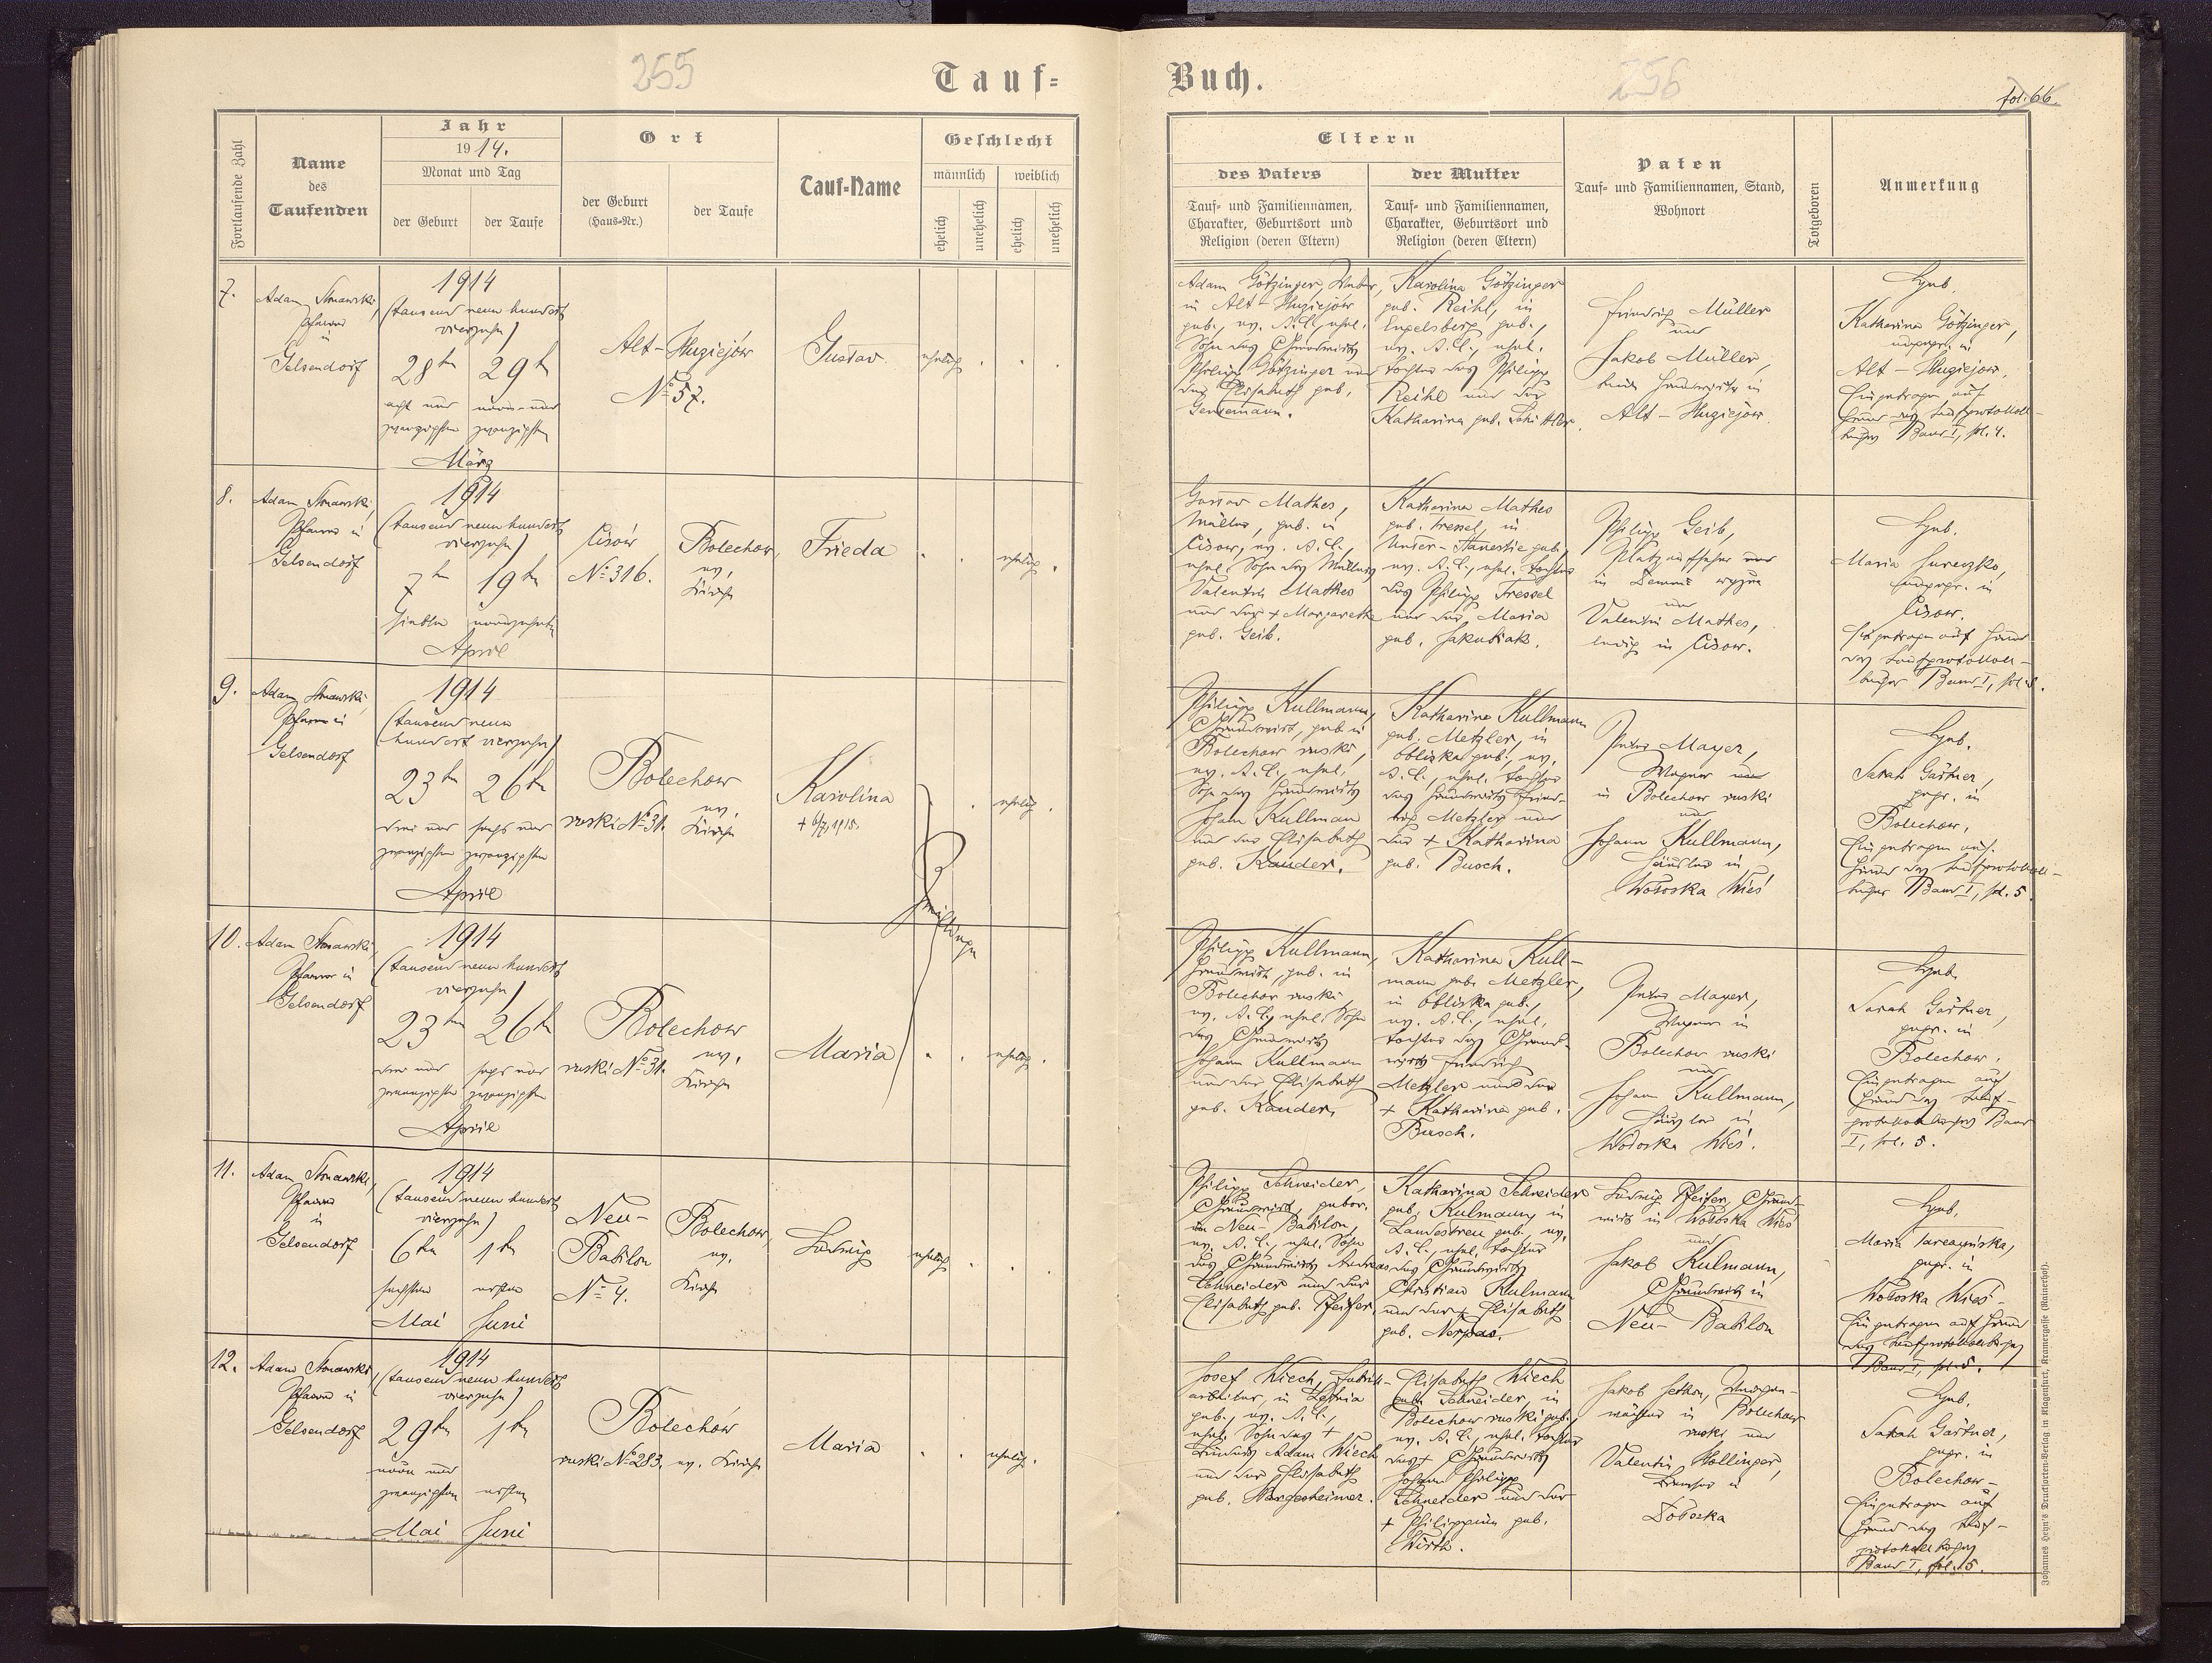 255
Tauf-
Fortlaufende Zahl
Name
des
Taufenden
Jahr
1914.
Monat und Tag
der Geburt
der Taufe
Ort
der Geburt
(Haus-Nr.)
der Taufe
Tauf-Name
Geschlecht
männlich
weiblich
ehelich
unehelich
ehelich
unehelich
7.
Adam
Pfarrer
in
Gelsendorf
1914
(tausend neun hundert
vierzehn)
28ten 29ten
acht und neun-und
zwanzigsten zwanzigsten
März
Alt-Huziejów
No 57.
Gustav
ehelich
8.
Adam
Pfarrer in
Gelsendorf
1914
(tausend neun hundert
vierzehn)
7ten 19ten
Siebten neunzehnten
April
Cisów
No 316.
Bolechow,
ev.
Kirche
Frieda
ehelich
9.
Adam
Pfarrer in
Gelsendorf
1914
(tausend neun
hundert vierzehn)
23ten 26ten
drei und sechs und
zwanzigsten zwanzigsten
April
Bolechow
ruski No 31.
ev.
Kirche
Karolina
ehelich
Zwillinge
10.
Adam
Pfarrer in
Gelsendorf
1914
(tausend neun hundert
vierzehn)
23ten 26ten
drei und sechs und
zwanzigsten zwanzigsten
April
Bolechow
ruski No 31.
ev.
Kirche
Maria
ehelich
11.
Adam
Pfarrer
in
Gelsendorf
1914
(tausend neun hundert
vierzehn)
6ten 1ten
sechsten ersten
Mai Juni
Neu-
Babilon
No 4.
Bolechow,
ev.
Kirche
Ludwig
ehelich
12.
Adam
Pfarrer in
Gelsendorf
1914
(tausend neun hundert
vierzehn)
29ten 1ten
neun und
zwanzigsten ersten
Mai Juni
Bolechów
ruski No 283. ev. Kirche
Maria
ehelich
Buch.
256
fol. 66.
Eltern
des Vaters
der Mutter
Tauf- und Familiennamen,
Charakter, Geburtsort und
Religion (deren Eltern)
Tauf- und Familiennamen,
Charakter, Geburtsort und
Religion (deren Eltern)
Paten
Tauf- und Familiennamen, Stand,
Wohnort
Totgeboren
Anmerkung
Adam Götzinger, Weber,
in Alt-Huziejów
geb., ev. A.C., ehel.
Sohn des Grundwirts
Philipp Götzinger und
der Elisabeth geb.
Gentemann.
Karolina Götzinger
geb. Reihl, in
Engelsberg geb.,
ev. A.C., ehel.
Tochter des Philipp
Reihl und der
Katharina geb. Schittler.
Friedrich Müller
und
Jakob Müller,
beide Grundwirte in
Alt-Huziejow.
Heb.
Katharina Götzinger,
ungepr. in
Alt-Huziejow.
Eingetragen auf
Grund des Taufprotokoll-
buches Band I, fol. 4.
Gustav Mathes,
Müller, geb. in
Cisow, ev. A.C.,
ehel. Sohn des Müllers
Valentin Mathes
und der + Margarethe
geb. Geib.
Katharina Mathes
geb. Fressel, in
Unter-Stanestie geb.,
ev. A.C., ehel. Tochter
des Philipp Fressel
und der Maria
geb. Jakubiak.
Philipp Geib,
Platzaufseher
in
und
Valentin Mathes,
ledig in Cisow.
Heb.
Maria
ungepr. in
Cisow.
Eingetragen auf Grund
des Taufprotokoll-
buches Band I, fol.
Philipp Kullmann,
Grundwirt, geb. in
Bolechow ruski,
ev. A.C., ehel.
Sohn des Grundwirts
Johann Kullmann
und der Elisabeth
geb. Kauder.
Katharina Kullmann
geb. Metzler, in
Obliska geb., ev.
A.C., ehel. Tochter
des Grundwirts Fried-
rich Metzler und
der + Katharina
geb. Busch.
Peter Mayer,
Wagner
in Bolechow ruski
und
Johann Kullmann,
Häusler in
Wołoska Wieś
Heb.
Sarah Gärtner,
gepr. in
Bolechow.
Eingetragen auf
Grund des Taufprotokoll-
buches Band I, fol. 5.
Philipp Kullmann,
Grundwirt, geb. in
Bolechow ruski
ev. A.C., ehel. Sohn
des Grundwirts
Johann Kullmann
und der Elisabeth
geb. Kauder.
Katharina Kull-
mann geb. Metzler,
in Obliska geb.,
ev. A.C., ehel.
Tochter des Grund-
wirts Friedrich
Metzler und der
+ Katharina geb.
Busch.
Peter Mayer,
Wagner in
Bolechow ruski
und
Johann Kullmann,
Häusler in
Wołoska Wieś.
Heb.
Sarah Gärtner,
gepr. in
Bolechow.
Eingetragen auf
Grund des Tauf-
protokollbuches Band
I, fol. 5.
Philipp Schneider,
Grundwirt, gebor.
in Neu-Babilon,
ev. A.C., ehel. Sohn
des Grundwirts Andreas
Schneider und der
Elisabeth geb. Pfeifer.
Katharina Schneider
geb. Kulmann, in
Landestreu geb., ev.
A.C., ehel. Tochter
des Grundwirts
Christian Kulmann
und der + Elisabeth
geb.
Ludwig Pfeifer, Grund-
wirt in Wołoska Wieś
und
Jakob Kulmann,
Grundwirt in
Neu-Babilon
Heb.
Maria
gepr. in
Wołoska Wieś-
Eingetragen auf Grund
des Taufprotokollbuches
Band I, fol. 5.
Josef Wiech, Fabrik-
arbeiter, in
geb., ev. A.C.,
ehel. Sohn des +
Adam Wiech
und der Elisabeth
geb. Hargesheimer.
Elisabeth Wiech
geb. Schneider, in
Bolechow ruski geb.,
ev. A.C., ehel. Tochter
des + Grundwirts
Johann Philipp
Schneider und der
+ Philippine geb.
Wirth.
Jakob
wächter in Bolechow
ruski und
Valentin Hollinger,
in
Dołoska
Heb.
Sarah Gärtner,
gepr. in
Bolechow-
Eingetragen auf
Grund des Tauf-
protokollbuches
Band I, fol. 5.
Johannes Heyn's Drucksorten-Verlag in Klagenfurt, Kramergasse (Rainerhof).